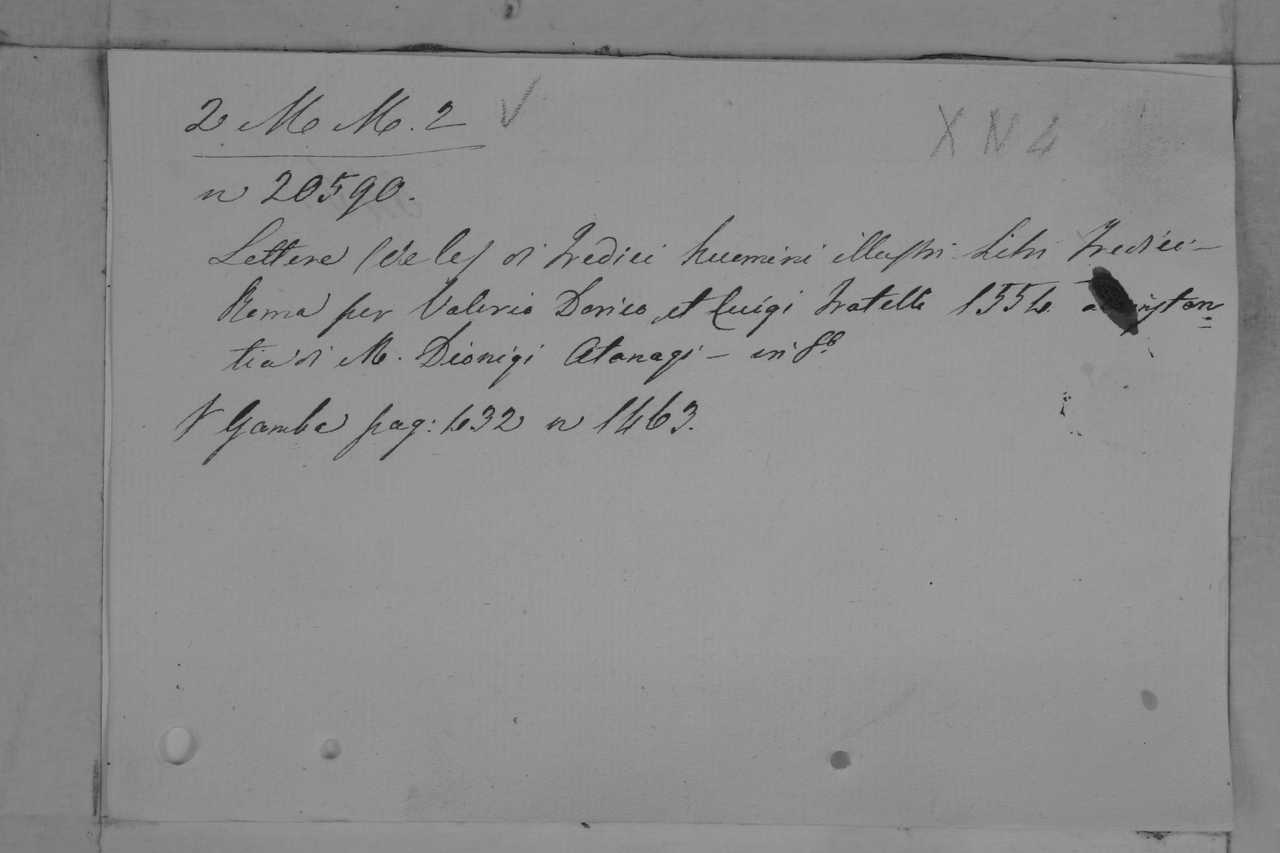 2 M M. 2 √
X N 4
n 20590.
Lettere (de le) di Tredici huomini illustri Libri Tredici -
Roma per Valerio Dorico, et Luigi Fratelli 1554. a istan=
tia di M. Dionigi Atanagi - in 8º
V Gamba pag: 432 n 1463.